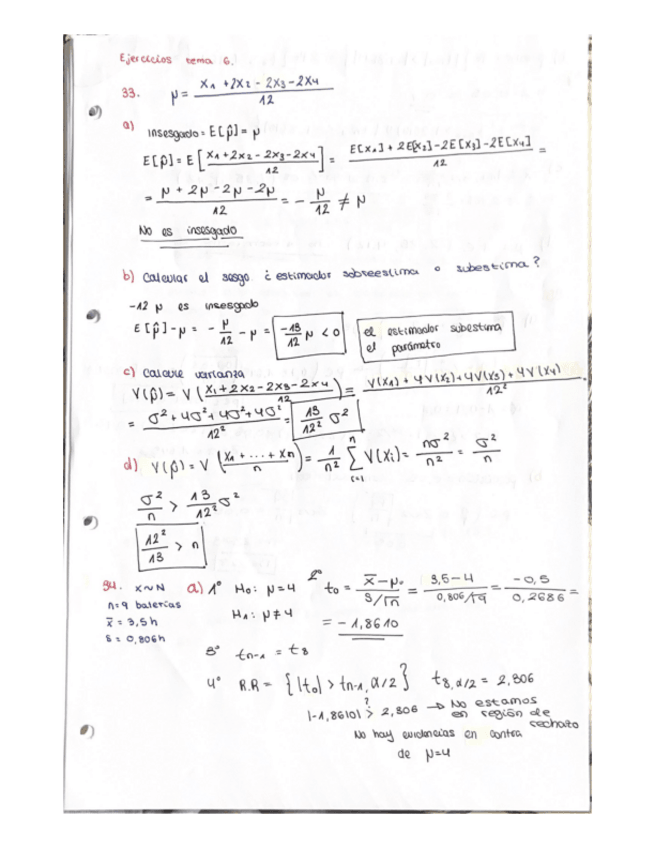 Ejercicios tema 6.
33. μ = (X1 + 2X2 - 2X3 - 2X4) / 12
a) insesgado = E[μ̂] = μ
E[μ̂] = E[(X1 + 2X2 - 2X3 - 2X4) / 12] = (E[X1] + 2E[X2] - 2E[X3] - 2E[X4]) / 12 =
= (μ + 2μ - 2μ - 2μ) / 12 = - μ/12 ≠ μ
No es insesgado
b) Calcular el sesgo ¿estimador sobreestima o subestima?
-12 μ es insesgado
E[μ̂] - μ = - μ/12 - μ = -13/12 μ < 0
el estimador subestima
el parámetro
c) Calcule varianza
V(μ̂) = V((X1 + 2X2 - 2X3 - 2X4) / 12) = (V(X1) + 4V(X2) + 4V(X3) + 4V(X4)) / 12²
= (σ² + 4σ² + 4σ² + 4σ²) / 12² = 13/12² σ²
d) V(μ̂) = V((X1 + ... + Xn) / n) = 1/n² ∑ⁿᵢ₌₁ V(Xi) = nσ²/n² = σ²/n
σ²/n > 13/12² σ²
12²/13 > n
34. X~N
n=9 baterias
x̄ = 3,5h
s = 0,806h
a) 1º H0: μ=4
H1: μ≠4
2º t0 = (x̄ - μ0) / (s/√n) = (3,5 - 4) / (0,806/√9) = -0,5 / 0,2686 =
= -1,8610
3º tn-1 = t8
4º R.R = {|t0| > tn-1, α/2} t8, α/2 = 2,306
|-1,8610| >? 2,306 → No estamos
en región de
rechazo
No hay evidencias en contra
de μ=4